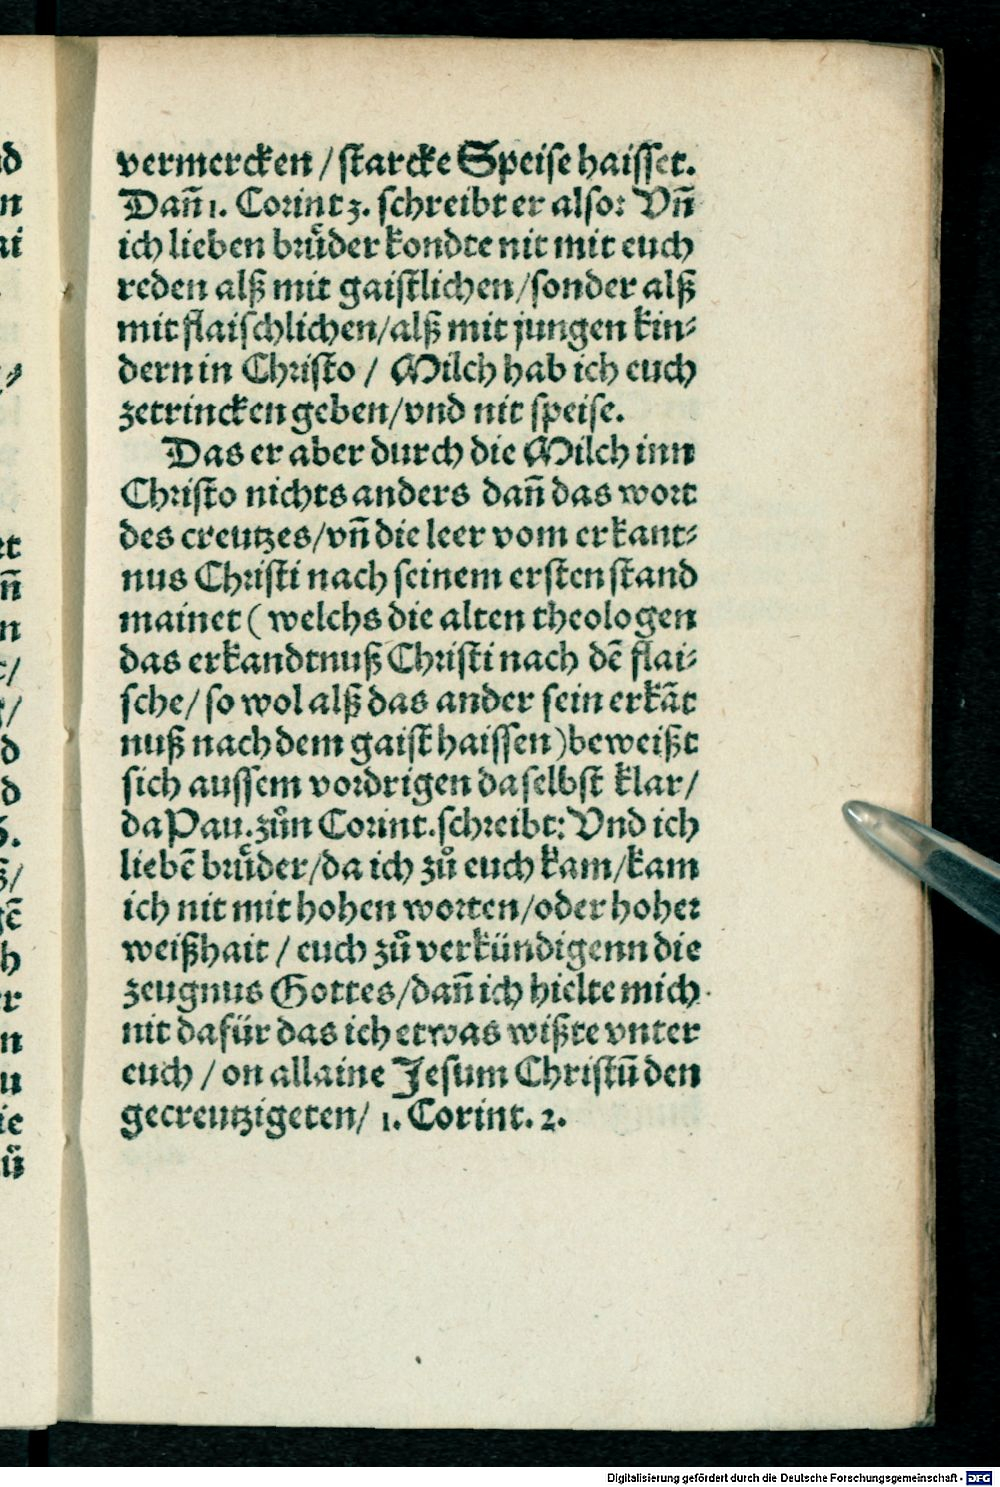 vermercken / starcke Speise haisset.
Dañ 1. Corint 3. schreibt er also: Vñ
ich lieben brůder kondte nit mit euch
reden alß mit gaistlichen/sonder alß
mit flaischlichen/alß mit jungen kin⸗
dern in Christo / Milch hab ich euch
zetrincken geben/vnd nit speise.
Das er aber durch die Milch inn
Christo nichts anders dañ das wort
des creutzes/vñ die leer vom erkant⸗
nus Christi nach seinem ersten stand
mainet ( welchs die alten theologen
das erkandtnuß Christi nach dẽ flai⸗
sche/ so wol alß das ander sein erkãt
nuß nach dem gaist haissen) beweißt
sich aussem vordrigen daselbst klar/
da Pau. zůn Corint. schreibt: Vnd ich
liebẽ brůder/da ich zů euch kam/kam
ich nit mit hohen worten/oder hoher
weißhait / euch zů verkündigenn die
zeugnus Gottes/dañ ich hielte mich
nit dafür das ich etwas wißte vnter
euch / on allaine Jesum Christũ den
gecreutzigeten/ 1. Corint. 2.
Digitalisierung gefördert durch die Deutsche Forschungsgemeinschaft - DFG